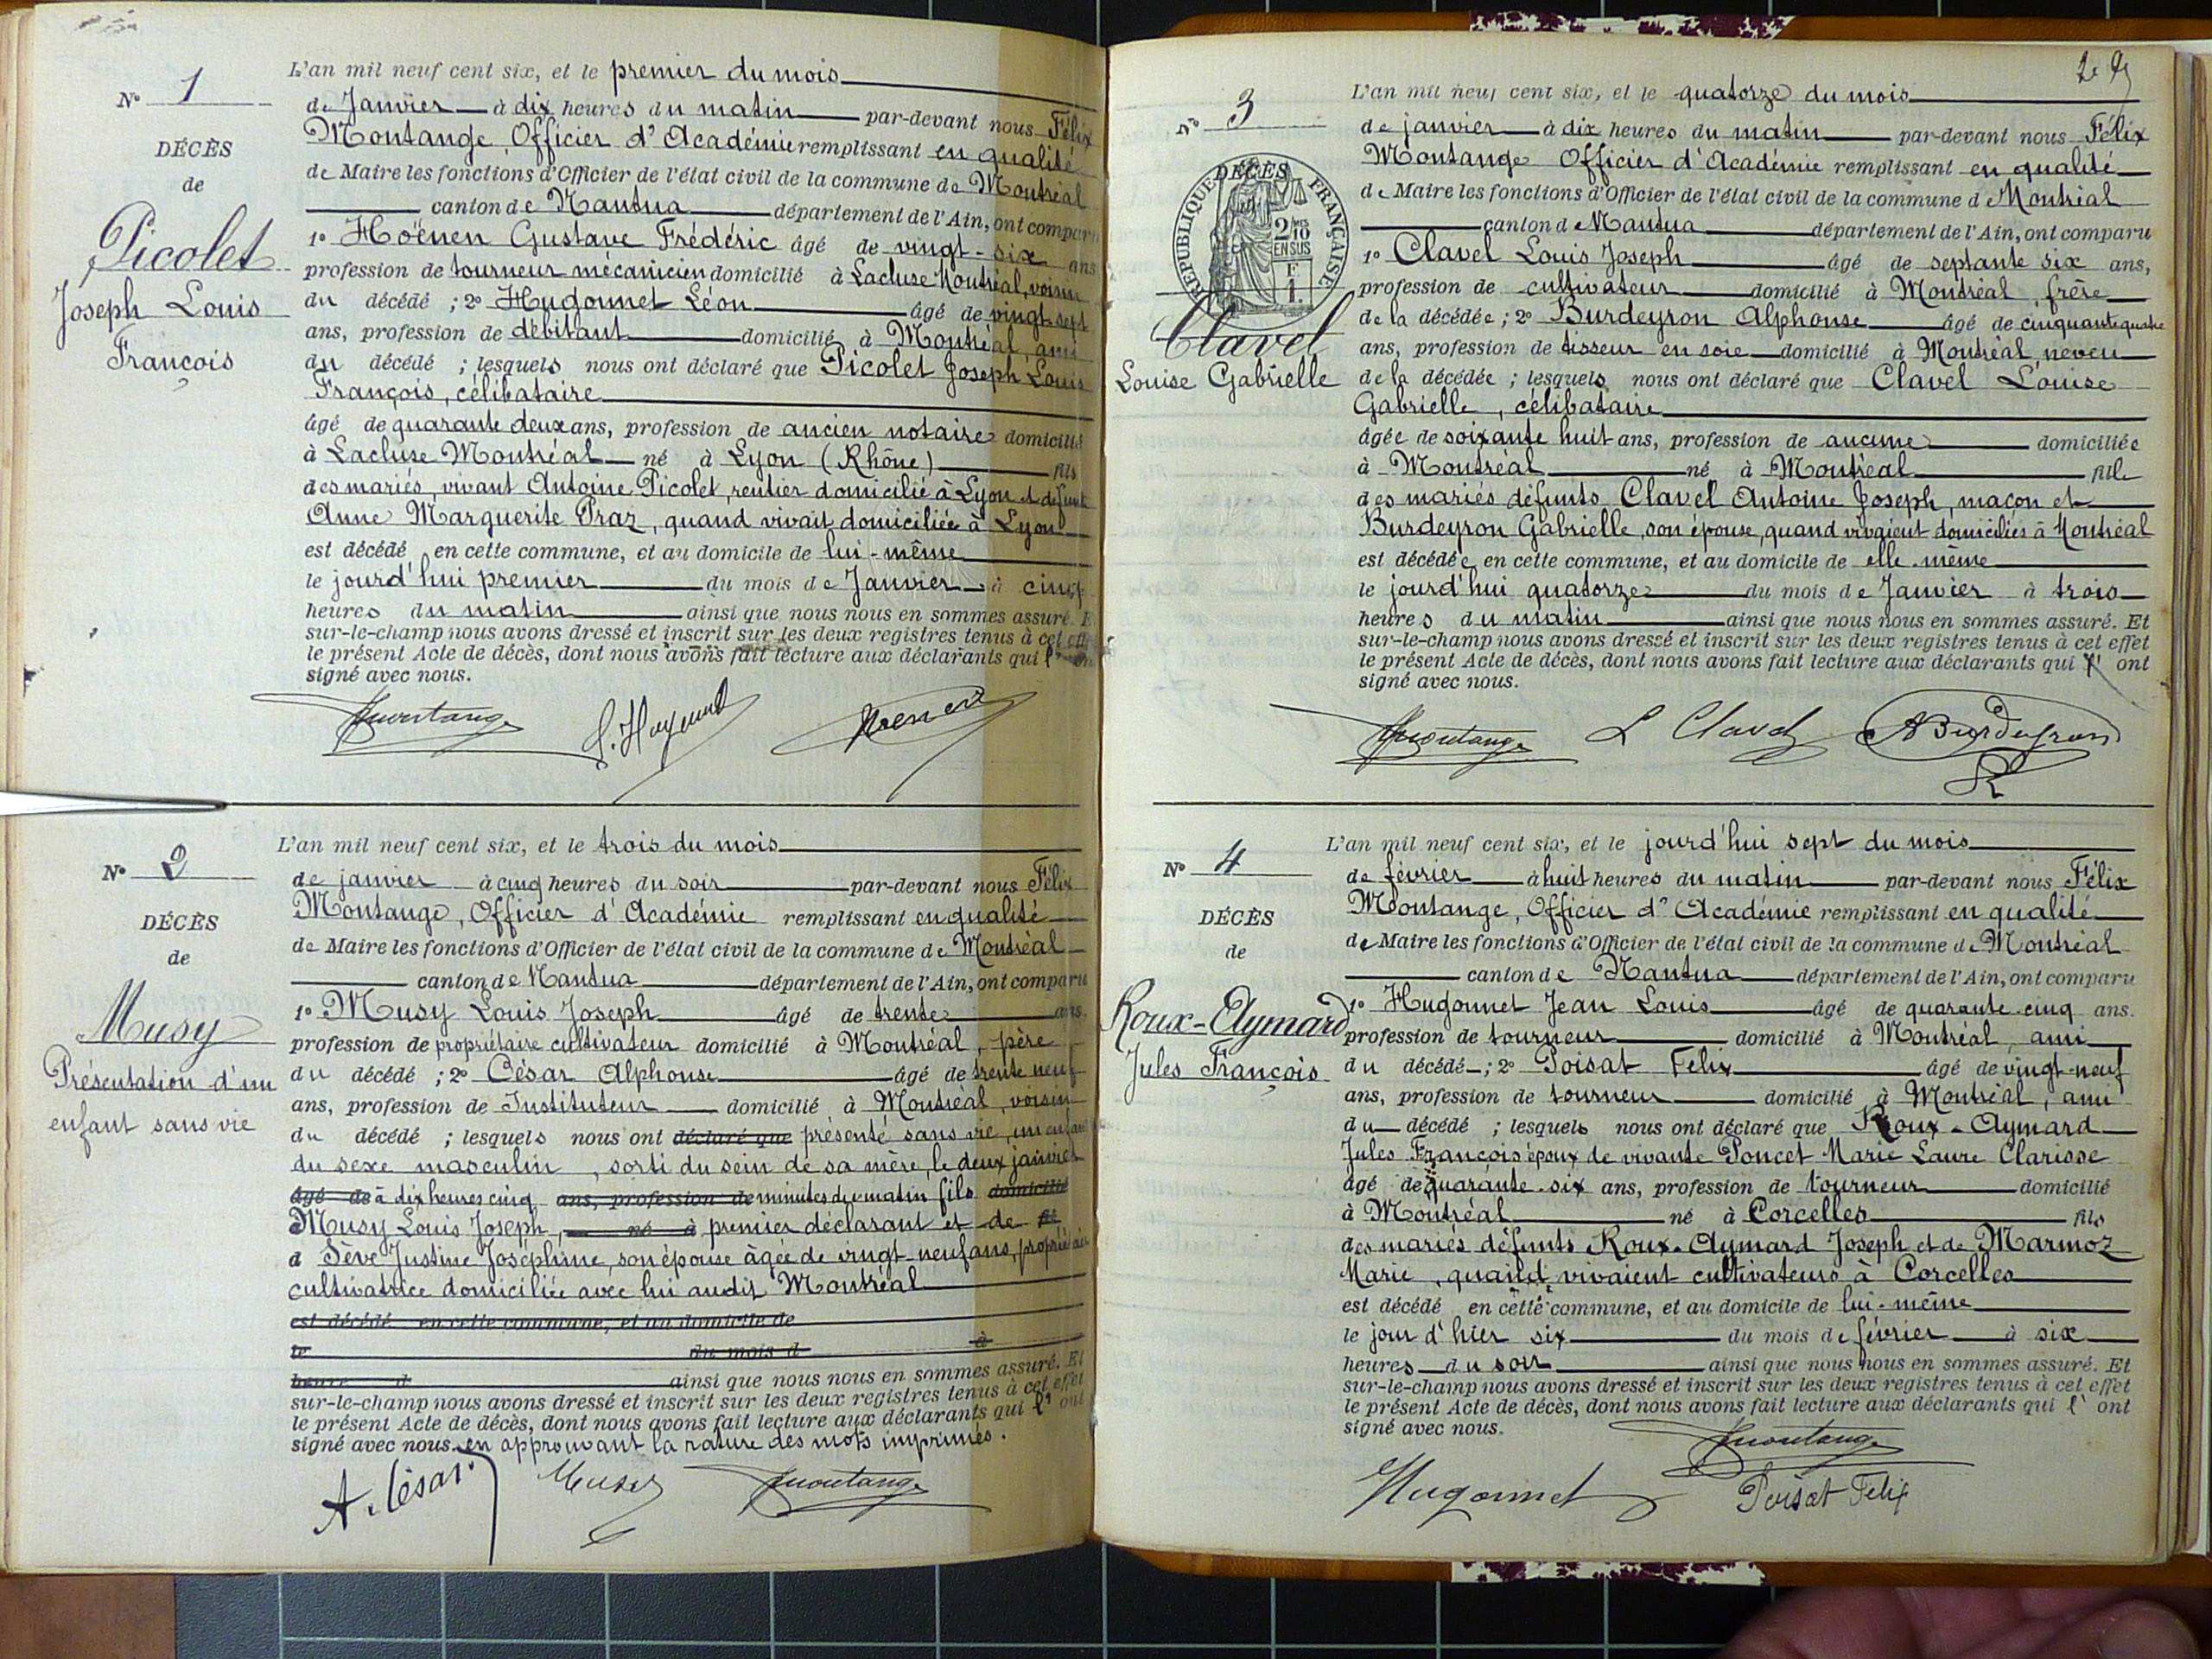 N° 1
DÉCÈS
de
Picolet
Joseph Louis
François
L'an mil neuf cent six, et le premier du mois
de Janvier à dix heures du matin par-devant nous Félix
Montange, Officier d'Académie remplissant en qualité
de Maire les fonctions d'Officier de l'état civil de la commune de Montréal
canton de Nantua département de l'Ain, ont comparu
1° Hoënen Gustave Frédéric âgé de vingt-six ans
profession de tourneur mécanicien domicilié à Lacluse Montréal, voisin
du décédé ; 2° Hugonnet Léon âgé de vingt sept
ans, profession de débitant domicilié à Montréal, ami
du décédé ; lesquels nous ont déclaré que Picolet Joseph Louis
François, célibataire
âgé de quarante deux ans, profession de ancien notaire domicilié
à Lacluse Montréal né à Lyon (Rhône) fils
des mariés, vivant Antoine Picolet, rentier domicilié à Lyon et défunte
Anne Marguerite Praz, quand vivait domiciliée à Lyon
est décédé en cette commune, et au domicile de lui-même
le jourd'hui premier du mois de Janvier à cinq
heures du matin ainsi que nous nous en sommes assuré. E
sur-le-champ nous avons dressé et inscrit sur les deux registres tenus à cet effet
le présent Acte de décès, dont nous avons fait lecture aux déclarants qui l'
signé avec nous.
Montange
N° 2
DÉCÈS
de
Musy
Présentation d'un
enfant sans vie
L'an mil neuf cent six, et le trois du mois
de janvier à cinq heures du soir par-devant nous Félix
Montange, Officier d'Académie remplissant en qualité
de Maire les fonctions d'Officier de l'état civil de la commune de Montréal
canton de Nantua département de l'Ain, ont comparu
1° Musy Louis Joseph âgé de trente ans.
profession de propriétaire cultivateur domicilié à Montréal, père
du décédé ; 2° César Alphonse âgé de trente neuf
ans, profession de Instituteur domicilié à Montréal, voisin
du décédé ; lesquels nous ont déclaré que présenté sans vie, un enfant
du sexe masculin, sorti du sein de sa mère, le deux janvier
âgé de à dix heures cinq ans, profession de minutes du matin fils domicilié
Musy Louis Joseph, né à premier déclarant et de
d Sève Justine Joséphine, son épouse âgée de vingt-neuf ans, propriétaire
cultivatrice domiciliée avec lui audit Montréal
est décédé en cette commune, et au domicile de
le du mois d à
heure d ainsi que nous nous en sommes assuré. Et
sur-le-champ nous avons dressé et inscrit sur les deux registres tenus à cet effet
le présent Acte de décès, dont nous avons fait lecture aux déclarants qui l' ont
signé avec nous. en approuvant la rature des mots imprimés.
A. César. Musy Montange
N° 3
RÉPUBLIQUE FRANÇAISE
DÉCÈS
2/10
EN SUS
F
1.
Clavel
Louise Gabrielle
L'an mil neuf cent six, et le quatorze du mois
de janvier à dix heures du matin par-devant nous Félix
Montange Officier d'Académie remplissant en qualité
de Maire les fonctions d'Officier de l'état civil de la commune d Montréal
canton d Nantua département de l'Ain, ont comparu
1° Clavel Louis Joseph âgé de septante six ans,
profession de cultivateur domicilié à Montréal, frère
de la décédée ; 2° Burdeyron Alphonse âgé de cinquante quatre
ans, profession de tisseur en soie domicilié à Montréal, neveu
de la décédée ; lesquels nous ont déclaré que Clavel Louise
Gabrielle, célibataire
âgée de soixante huit ans, profession de aucune domiciliée
à Montréal né à Montréal fille
des mariés défunts Clavel Antoine Joseph, maçon et
Burdeyron Gabrielle, son épouse, quand vivaient domiciliés à Montréal
est décédée en cette commune, et au domicile de elle-même
le jourd'hui quatorze du mois de Janvier à trois
heures du matin ainsi que nous nous en sommes assuré. Et
sur-le-champ nous avons dressé et inscrit sur les deux registres tenus à cet effet
le présent Acte de décès, dont nous avons fait lecture aux déclarants qui l' ont
signé avec nous.
Montange L Clavel A Burdeyron
N° 4
DÉCÈS
de
Roux-Aymard
Jules François
L'an mil neuf cent six, et le jourd'hui sept du mois
de février à huit heures du matin par-devant nous Félix
Montange, Officier d'Académie remplissant en qualité
de Maire les fonctions d'Officier de l'état civil de la commune de Montréal
canton de Nantua département de l'Ain, ont comparu
1° Hugonnet Jean Louis âgé de quarante-cinq ans.
profession de tourneur domicilié à Montréal, ami
du décédé ; 2° Poisat Felix âgé de vingt-neuf
ans, profession de tourneur domicilié à Montréal, ami
du décédé ; lesquels nous ont déclaré que Roux-Aymard
Jules François époux de vivante Poncet Marie Laure Clarisse
âgé de quarante-six ans, profession de tourneur domicilié
à Montréal né à Corcelles fils
des mariés défunts Roux-Aymard Joseph et de Marmoz
Marie, quand vivaient cultivateurs à Corcelles
est décédé en cette commune, et au domicile de lui-même
le jour d'hier six du mois de février à six
heures du soir ainsi que nous nous en sommes assuré. Et
sur-le-champ nous avons dressé et inscrit sur les deux registres tenus à cet effet
le présent Acte de décès, dont nous avons fait lecture aux déclarants qui l' ont
signé avec nous.
Montange
Hugonnet Poisat Felix